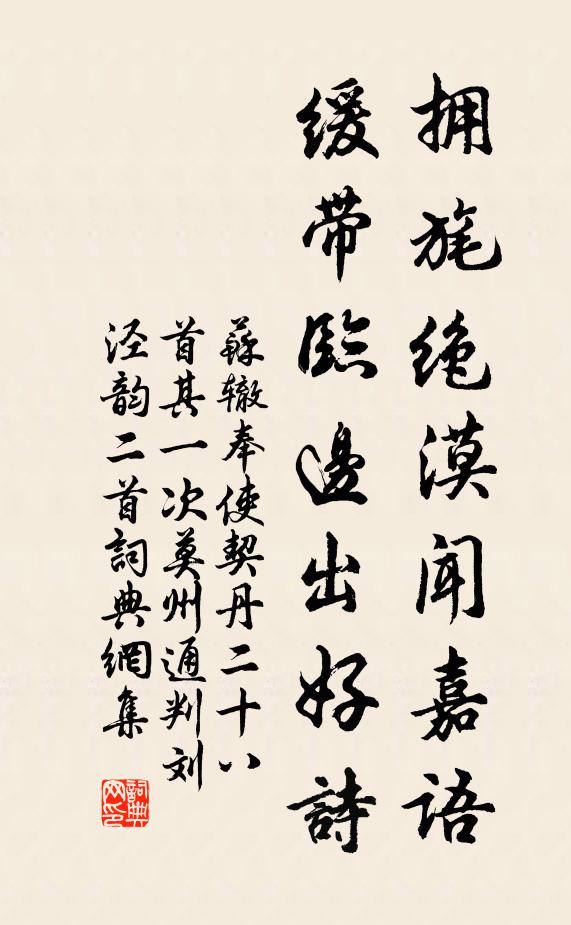 拥旄绝漠闻嘉语
缓带临邊出好詩
蘇辙奉使契丹二十八
首其一次莫州通判刘
泾韵二首詞典網集
詞典
网印